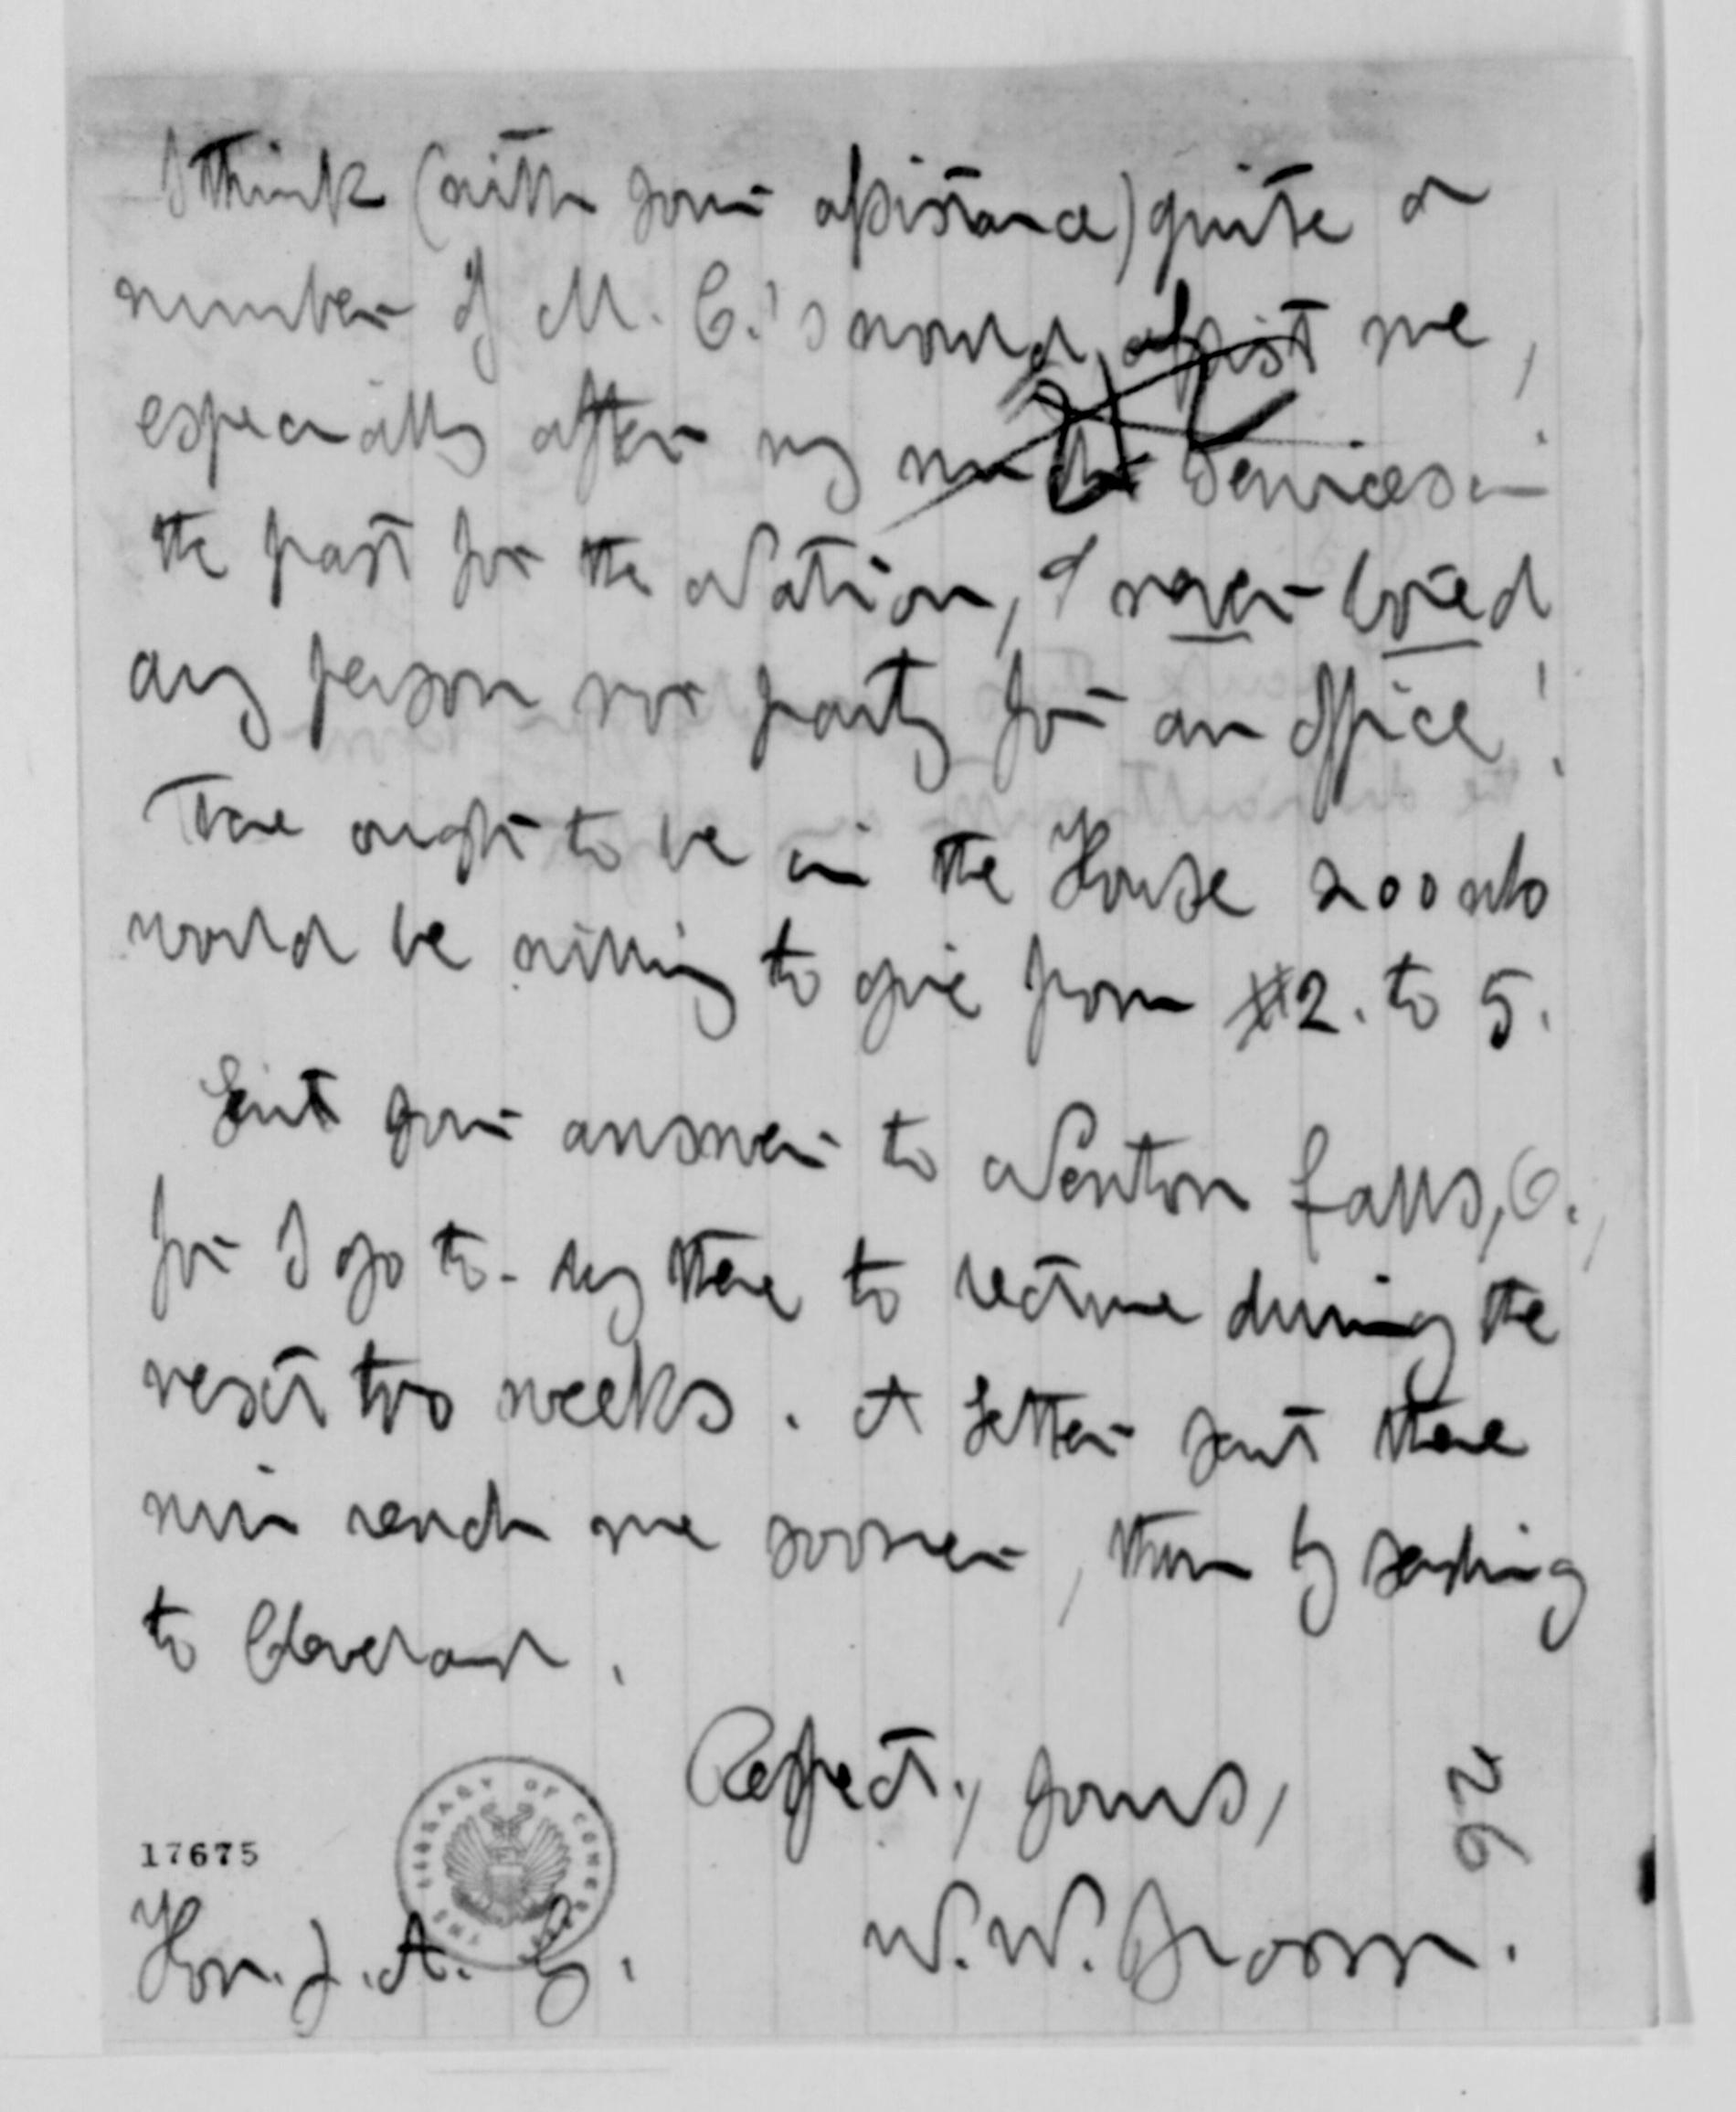 I think (with your assistance) quite a
number of M. C.'s would assist me,
especially after my services in
the past for the Nation, I never bored
any person nor party for an office!
There ought to be in the House 200 who
would be willing to give from $2. to 5.
your answer to Newton Falls, O.,
for I go to-day there to lecture during the
next two weeks. A letter sent there
will reach me sooner, than by sending
to Cleveland.
Respect., yours,
W. W. Broom.
Hon. J. A. G.
17675
92
THE LIBRARY OF CONGRESS